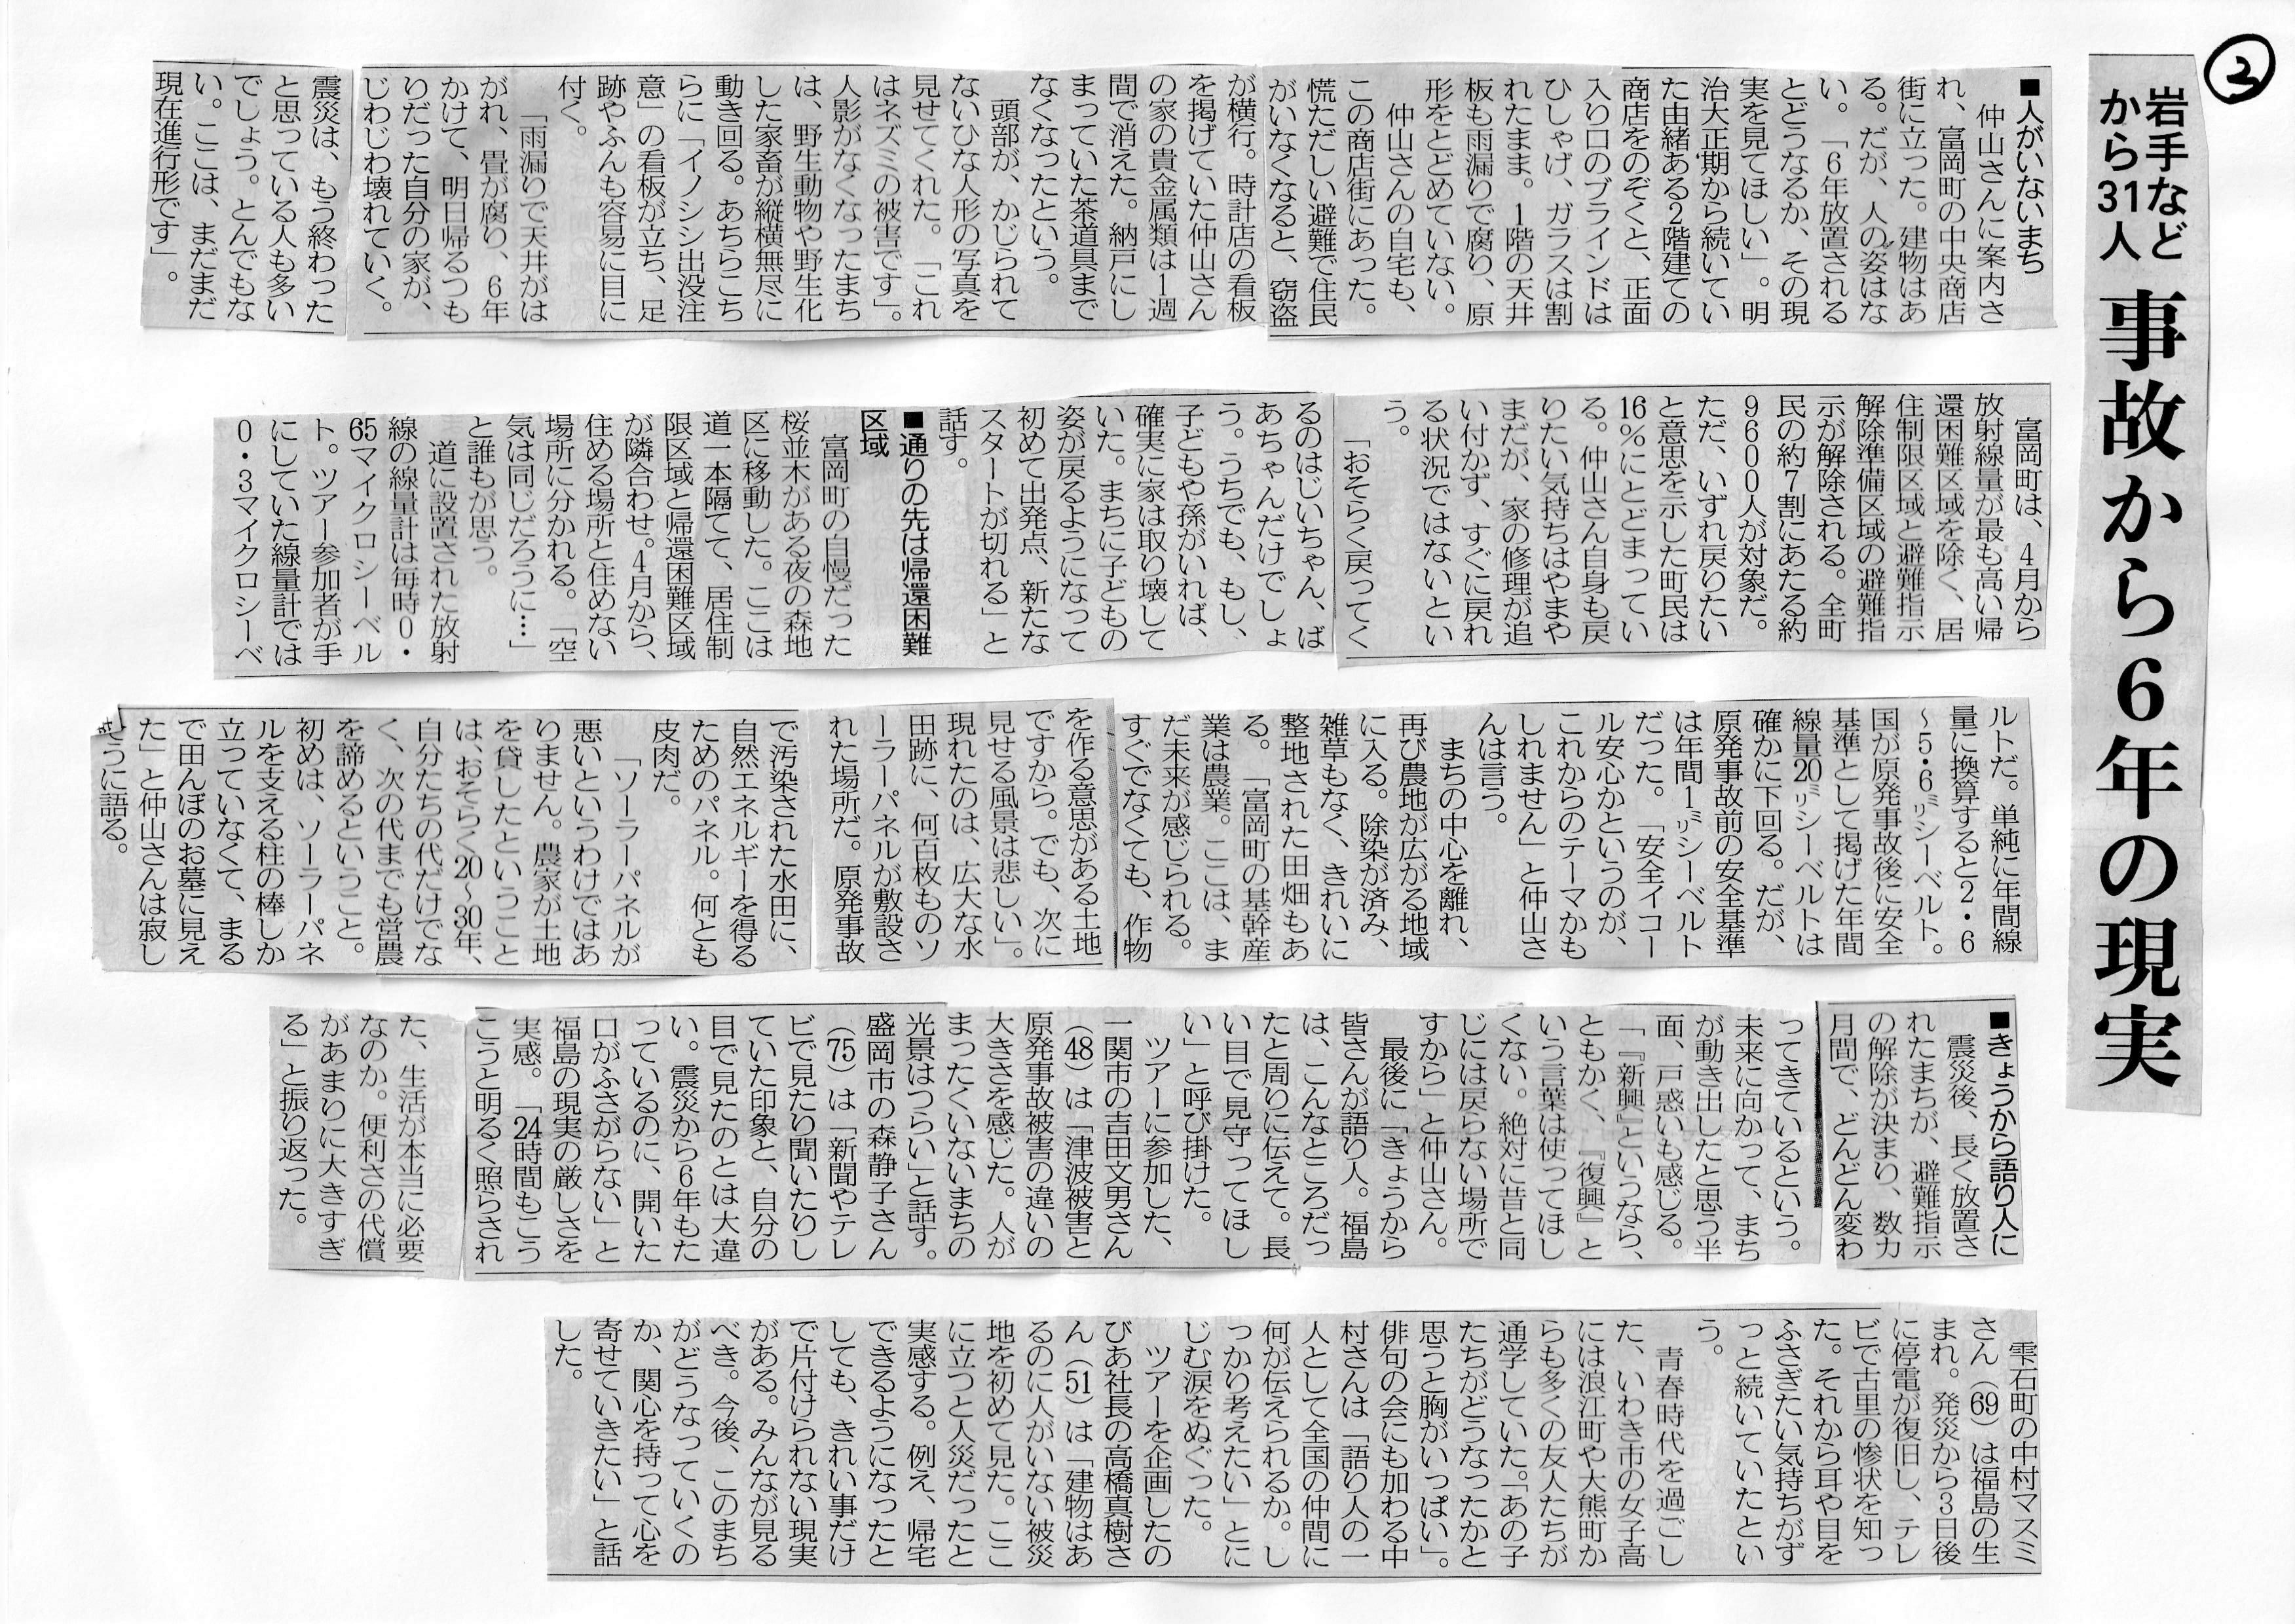 ②
岩手など
から31人
事故から6年の現実
■人がいないまち
仲山さんに案内さ
れ、富岡町の中央商店
街に立った。建物はあ
る。だが、人の姿はな
い。「6年放置される
とどうなるか、その現
実を見てほしい」。明
治大正期から続いてい
た由緒ある2階建ての
商店をのぞくと、正面
入り口のブラインドは
ひしゃげ、ガラスは割
れたまま。1階の天井
板も雨漏りで腐り、原
形をとどめていない。
仲山さんの自宅も、
この商店街にあった。
慌ただしい避難で住民
がいなくなると、窃盗
が横行。時計店の看板
を掲げていた仲山さん
の家の貴金属類は1週
間で消えた。納戸にし
まっていた茶道具まで
なくなったという。
頭部が、かじられて
ないひな人形の写真を
見せてくれた。「これ
はネズミの被害です」。
人影がなくなったまち
は、野生動物や野生化
した家畜が縦横無尽に
動き回る。あちらこち
らに「イノシシ出没注
意」の看板が立ち、足
跡やふんも容易に目に
付く。
「雨漏りで天井がは
がれ、畳が腐り、6年
かけて、明日帰るつも
りだった自分の家が、
じわじわ壊れていく。
震災は、もう終わった
と思っている人も多い
でしょう。とんでもな
い。ここは、まだまだ
現在進行形です」。
富岡町は、4月から
放射線量が最も高い帰
還困難区域を除く、居
住制限区域と避難指示
解除準備区域の避難指
示が解除される。全町
民の約7割にあたる約
9600人が対象だ。
ただ、いずれ戻りたい
と意思を示した町民は
16%にとどまってい
る。仲山さん自身も戻
りたい気持ちはやまや
まだが、家の修理が追
い付かず、すぐに戻れ
る状況ではないとい
う。
「おそらく戻ってく
るのはじいちゃん、ば
あちゃんだけでしょ
う。うちでも、もし、
子どもや孫がいれば、
確実に家は取り壊して
いた。まちに子どもの
姿が戻るようになって
初めて出発点、新たな
スタートが切れる」と
話す。
■通りの先は帰還困難
区域
富岡町の自慢だった
桜並木がある夜の森地
区に移動した。ここは
道一本隔てて、居住制
限区域と帰還困難区域
が隣合わせ。4月から、
住める場所と住めない
場所に分かれる。「空
気は同じだろうに…」
と誰もが思う。
道に設置された放射
線の線量計は毎時0・
65マイクロシーベル
ト。ツアー参加者が手
にしていた線量計では
0・3マイクロシーベ
ルトだ。単純に年間線
量に換算すると2・6
～5・6㍉シーベルト。
国が原発事故後に安全
基準として掲げた年間
線量20㍉シーベルトは
確かに下回る。だが、
原発事故前の安全基準
は年間1㍉シーベルト
だった。「安全イコー
ル安心かというのが、
これからのテーマかも
しれません」と仲山さ
んは言う。
まちの中心を離れ、
再び農地が広がる地域
に入る。除染が済み、
雑草もなく、きれいに
整地された田畑もあ
る。「富岡町の基幹産
業は農業。ここは、ま
だ未来が感じられる。
すぐでなくても、作物
を作る意思がある土地
ですから。でも、次に
見せる風景は悲しい」。
現れたのは、広大な水
田跡に、何百枚ものソ
ーラーパネルが敷設さ
れた場所だ。原発事故
で汚染された水田に、
自然エネルギーを得る
ためのパネル。何とも
皮肉だ。
「ソーラーパネルが
悪いというわけではあ
りません。農家が土地
を貸したということ
は、おそらく20～30年、
自分たちの代だけでな
く、次の代までも営農
を諦めるということ。
初めは、ソーラーパネ
ルを支える柱の棒しか
立っていなくて、まる
で田んぼのお墓に見え
た」と仲山さんは寂し
そうに語る。
■きょうから語り人に
震災後、長く放置さ
れたまちが、避難指示
の解除が決まり、数カ
月間で、どんどん変わ
ってきているという。
未来に向かって、まち
が動き出したと思う半
面、戸惑いも感じる。
「『新興』というなら、
ともかく、『復興』と
いう言葉は使ってほし
くない。絶対に昔と同
じには戻らない場所で
すから」と仲山さん。
最後に「きょうから
皆さんが語り人。福島
は、こんなところだっ
たと周りに伝えて。長
い目で見守ってほし
い」と呼び掛けた。
ツアーに参加した、
一関市の吉田文男さん
（48）は「津波被害と
原発事故被害の違いの
大きさを感じた。人が
まったくいないまちの
光景はつらい」と話す。
盛岡市の森静子さん
（75）は「新聞やテレ
ビで見たり聞いたりし
ていた印象と、自分の
目で見たのとは大違
い。震災から6年もた
っているのに、開いた
口がふさがらない」と
福島の現実の厳しさを
実感。「24時間もこう
こうと明るく照らされ
た、生活が本当に必要
なのか。便利さの代償
があまりに大きすぎ
る」と振り返った。
雫石町の中村マスミ
さん（69）は福島の生
まれ。発災から3日後
に停電が復旧し、テレ
ビで古里の惨状を知っ
た。それから耳や目を
ふさぎたい気持ちがず
っと続いていたとい
う。
青春時代を過ごし
た、いわき市の女子高
には浪江町や大熊町か
らも多くの友人たちが
通学していた。「あの子
たちがどうなったかと
思うと胸がいっぱい」。
俳句の会にも加わる中
村さんは「語り人の一
人として全国の仲間に
何が伝えられるか。し
っかり考えたい」とに
じむ涙をぬぐった。
ツアーを企画したの
びあ社長の高橋真樹さ
ん（51）は「建物はあ
るのに人がいない被災
地を初めて見た。ここ
に立つと人災だったと
実感する。例え、帰宅
できるようになったと
しても、きれい事だけ
で片付けられない現実
がある。みんなが見る
べき。今後、このまち
がどうなっていくの
か、関心を持って心を
寄せていきたい」と話
した。